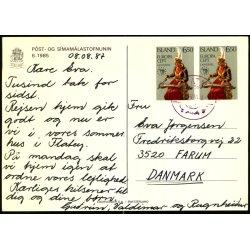 PÓST- OG SÍMAMÁLASTOFNUNIN
6-1985
08.08.87
Kære Eva.
Tusind tak for
sidst.
Rejsen hjem gik
godt og nu er
vi i vores sommer
hus i Flatey.
På mandag skal
vi hjem igen at
ordne vores lejlighed
Kærlige hilsener til
dig og dine børn
Guðrún, Valdimar og Ragnheiður
ÍSLAND 650
EUROPA
CEPT
ÍSLAND 650
EUROPA
CEPT
Fru
Eva Jørgensen
Frederiksborgvej 23
3520 FARUM
DANMARK